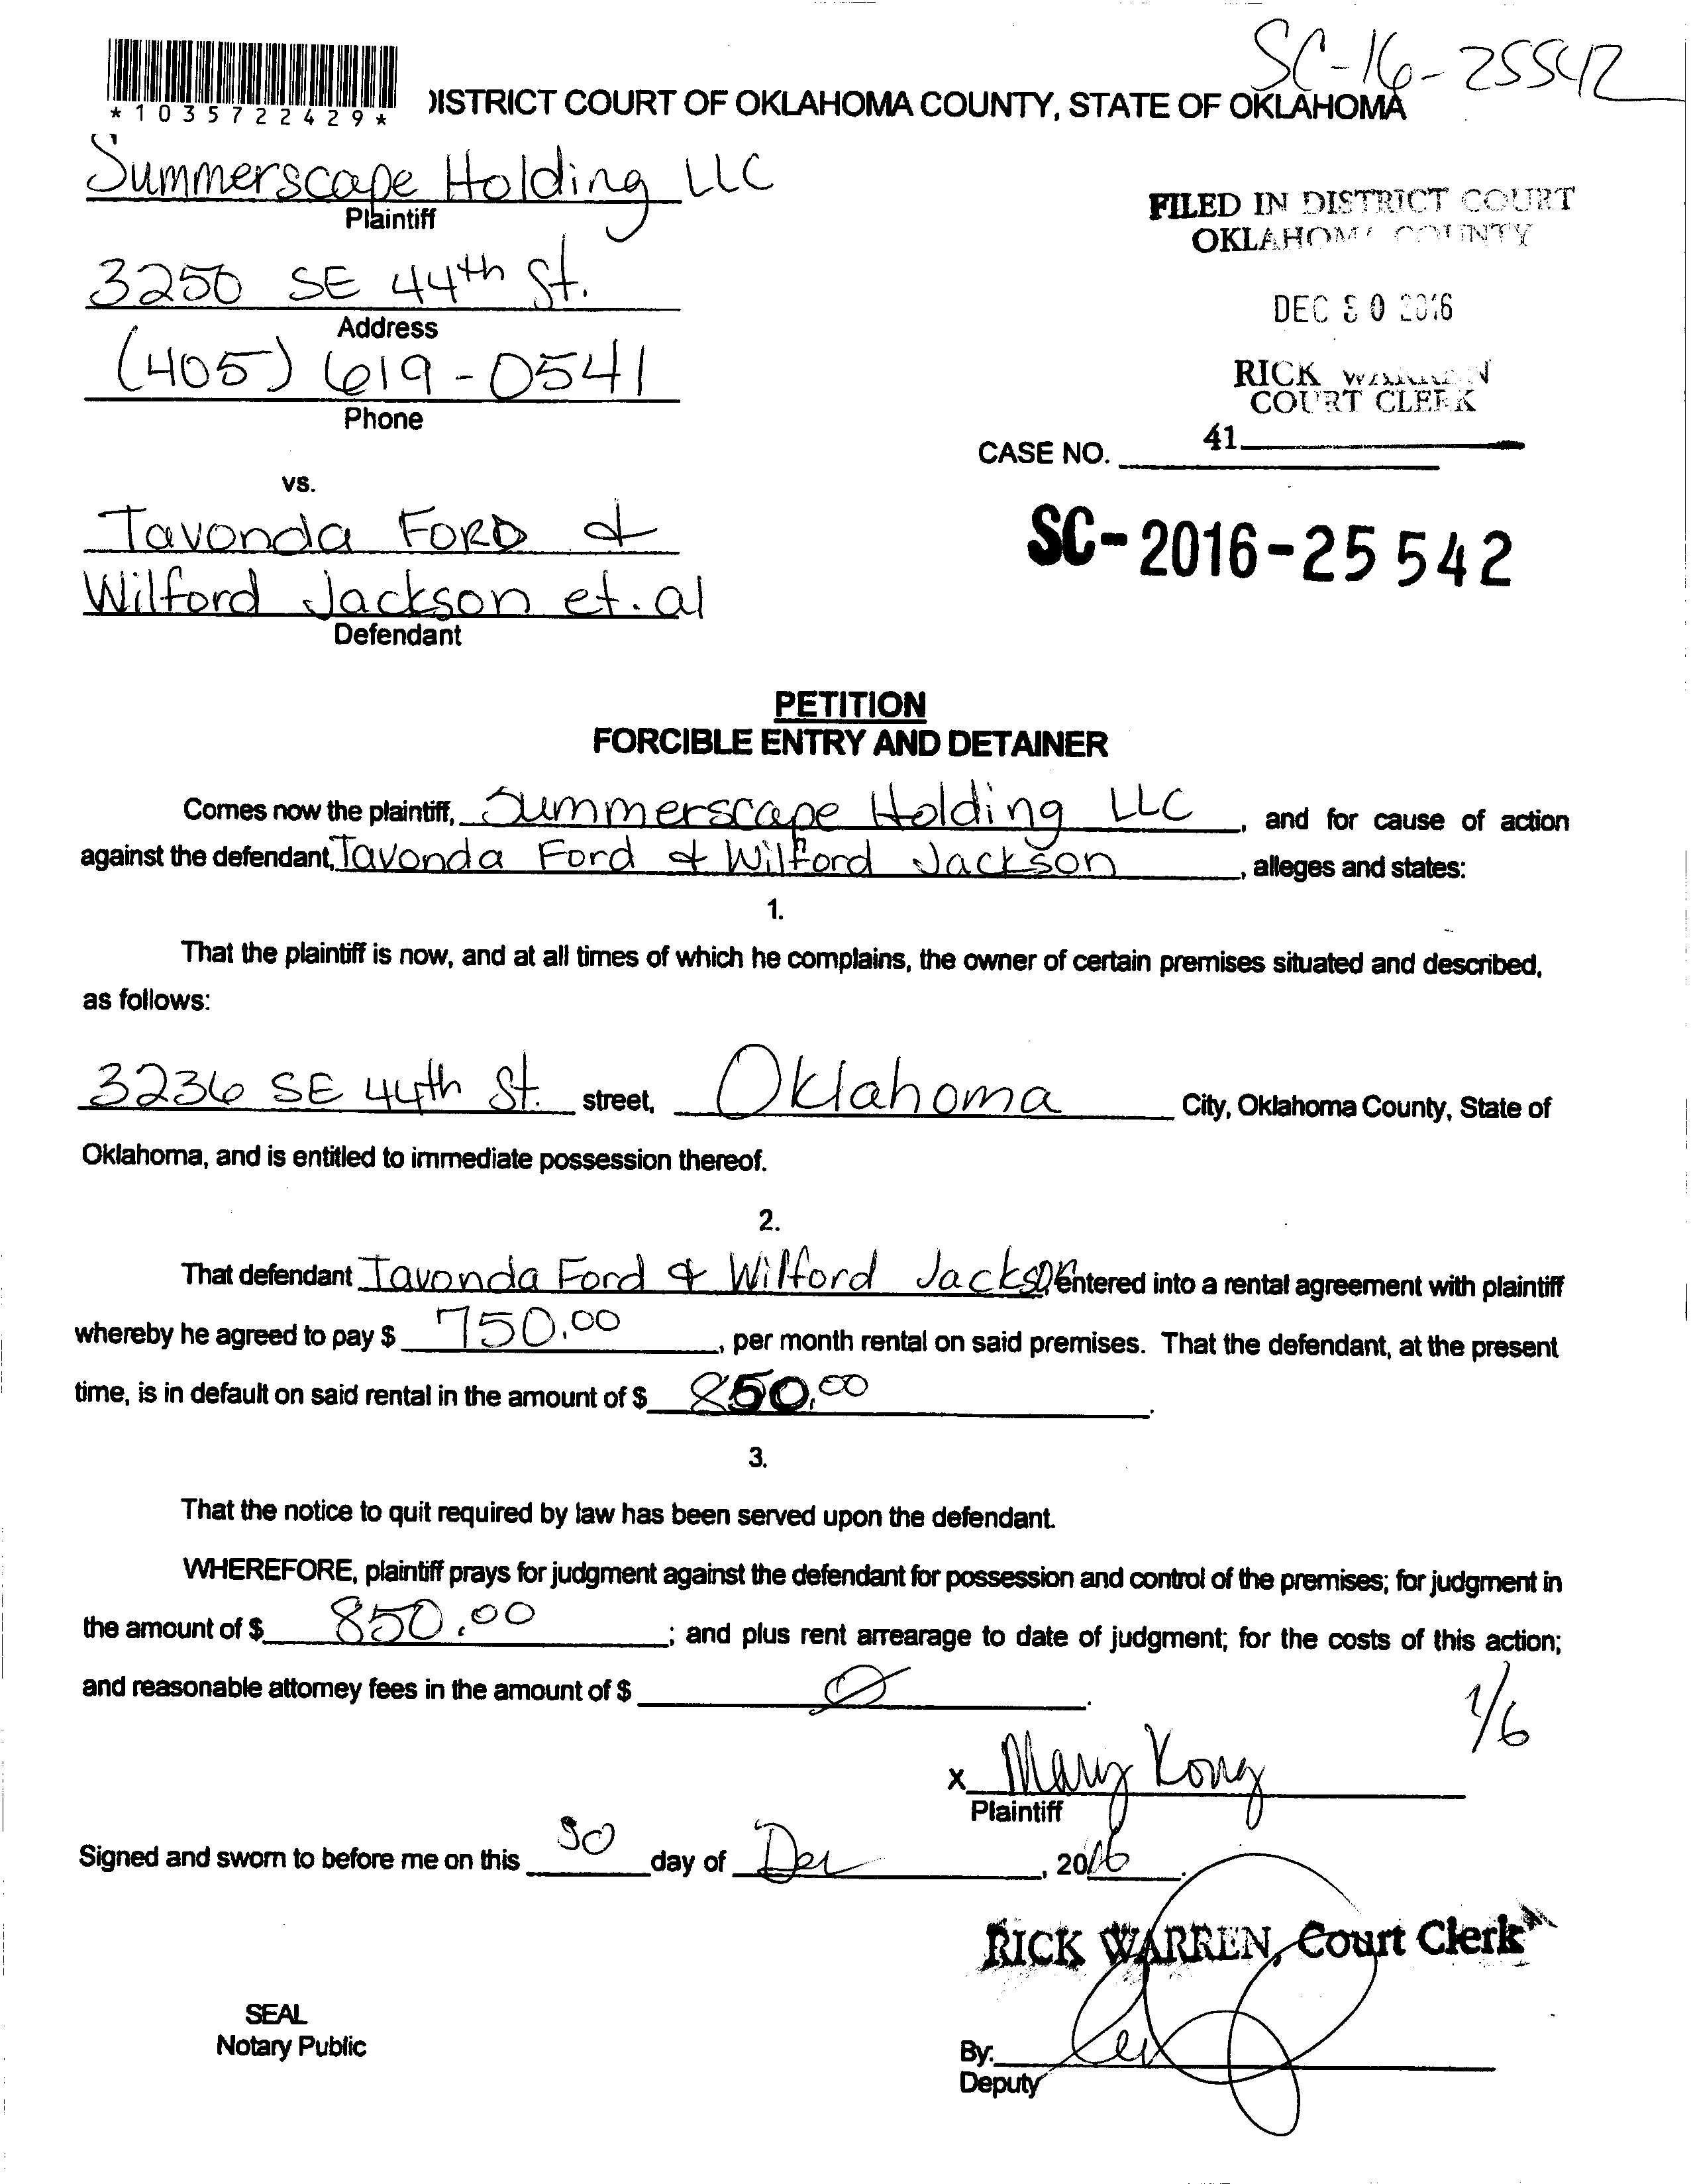 SC-16-25542
*1035722429*
DISTRICT COURT OF OKLAHOMA COUNTY, STATE OF OKLAHOMA
Summerscape Holding LLC
Plaintiff
FILED IN DISTRICT COURT
OKLAHOMA COUNTY
3250 SE 44th St.
Address
DEC 30 2016
(405) 619-0541
Phone
RICK WARREN
COURT CLERK
41
CASE NO.
vs.
Tavonda FORD &
Wilford Jackson et. al
Defendant
SC-2016-25542
PETITION
FORCIBLE ENTRY AND DETAINER
Comes now the plaintiff, Summerscape Holding LLC, and for cause of action
against the defendant, Tavonda Ford & Wilford Jackson, alleges and states:
1.
That the plaintiff is now, and at all times of which he complains, the owner of certain premises situated and described,
as follows:
3236 SE 44th St. street, Oklahoma City, Oklahoma County, State of
Oklahoma, and is entitled to immediate possession thereof.
2.
That defendant Tavonda Ford & Wilford Jackson entered into a rental agreement with plaintiff
whereby he agreed to pay $ 750.00, per month rental on said premises. That the defendant, at the present
time, is in default on said rental in the amount of $ 850.00.
3.
That the notice to quit required by law has been served upon the defendant.
WHEREFORE, plaintiff prays for judgment against the defendant for possession and control of the premises; for judgment in
the amount of $ 850.00; and plus rent arrearage to date of judgment; for the costs of this action;
and reasonable attorney fees in the amount of $ Ø.
1/6
x Mary Kong
Plaintiff
Signed and sworn to before me on this 30 day of Dec, 2016.
RICK WARREN, Court Clerk
SEAL
Notary Public
By:
Deputy